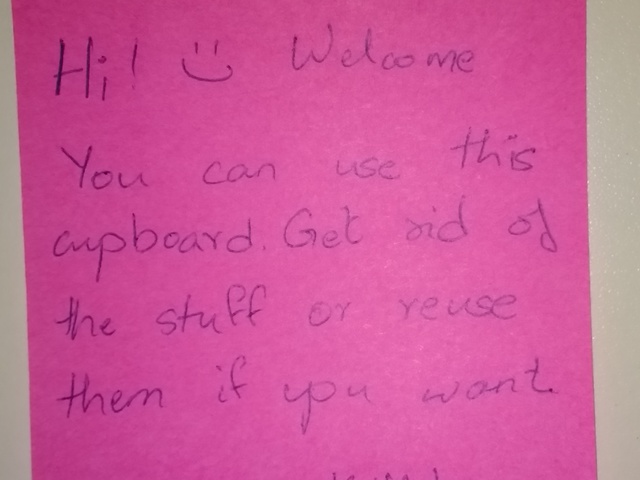 Hi! :) Welcome
You can use this
cupboard. Get rid of
the stuff or reuse
them if you want.